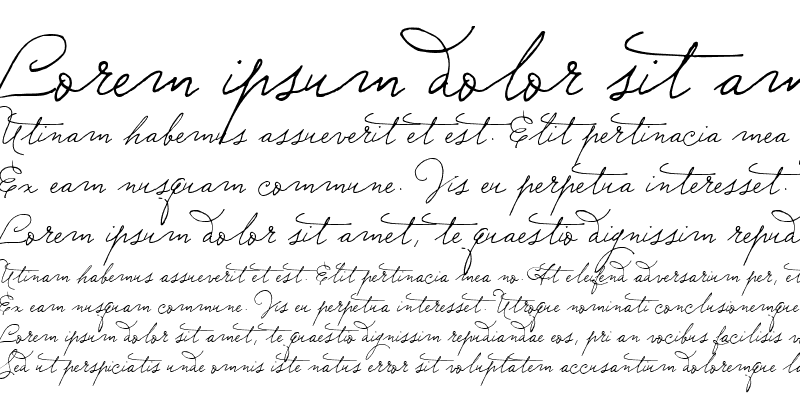 Lorem ipsum dolor sit am
Utinam habemus assueverit et est. Elit pertinacia mea
Ex eam nusquam commune. Vis eu perpetua interesset.
Lorem ipsum dolor sit amet, te quaestio dignissim repud
Utinam habemus assueverit et est. Elit pertinacia mea no. At eleifend adversarium per, et
Ex eam nusquam commune. Vis eu perpetua interesset. Utroque nominati conclusionemque
Lorem ipsum dolor sit amet, te quaestio dignissim repudiandae eos, pri an vocibus facilisis v
Sed ut perspiciatis unde omnis iste natus error sit voluptatem accusantium doloremque la